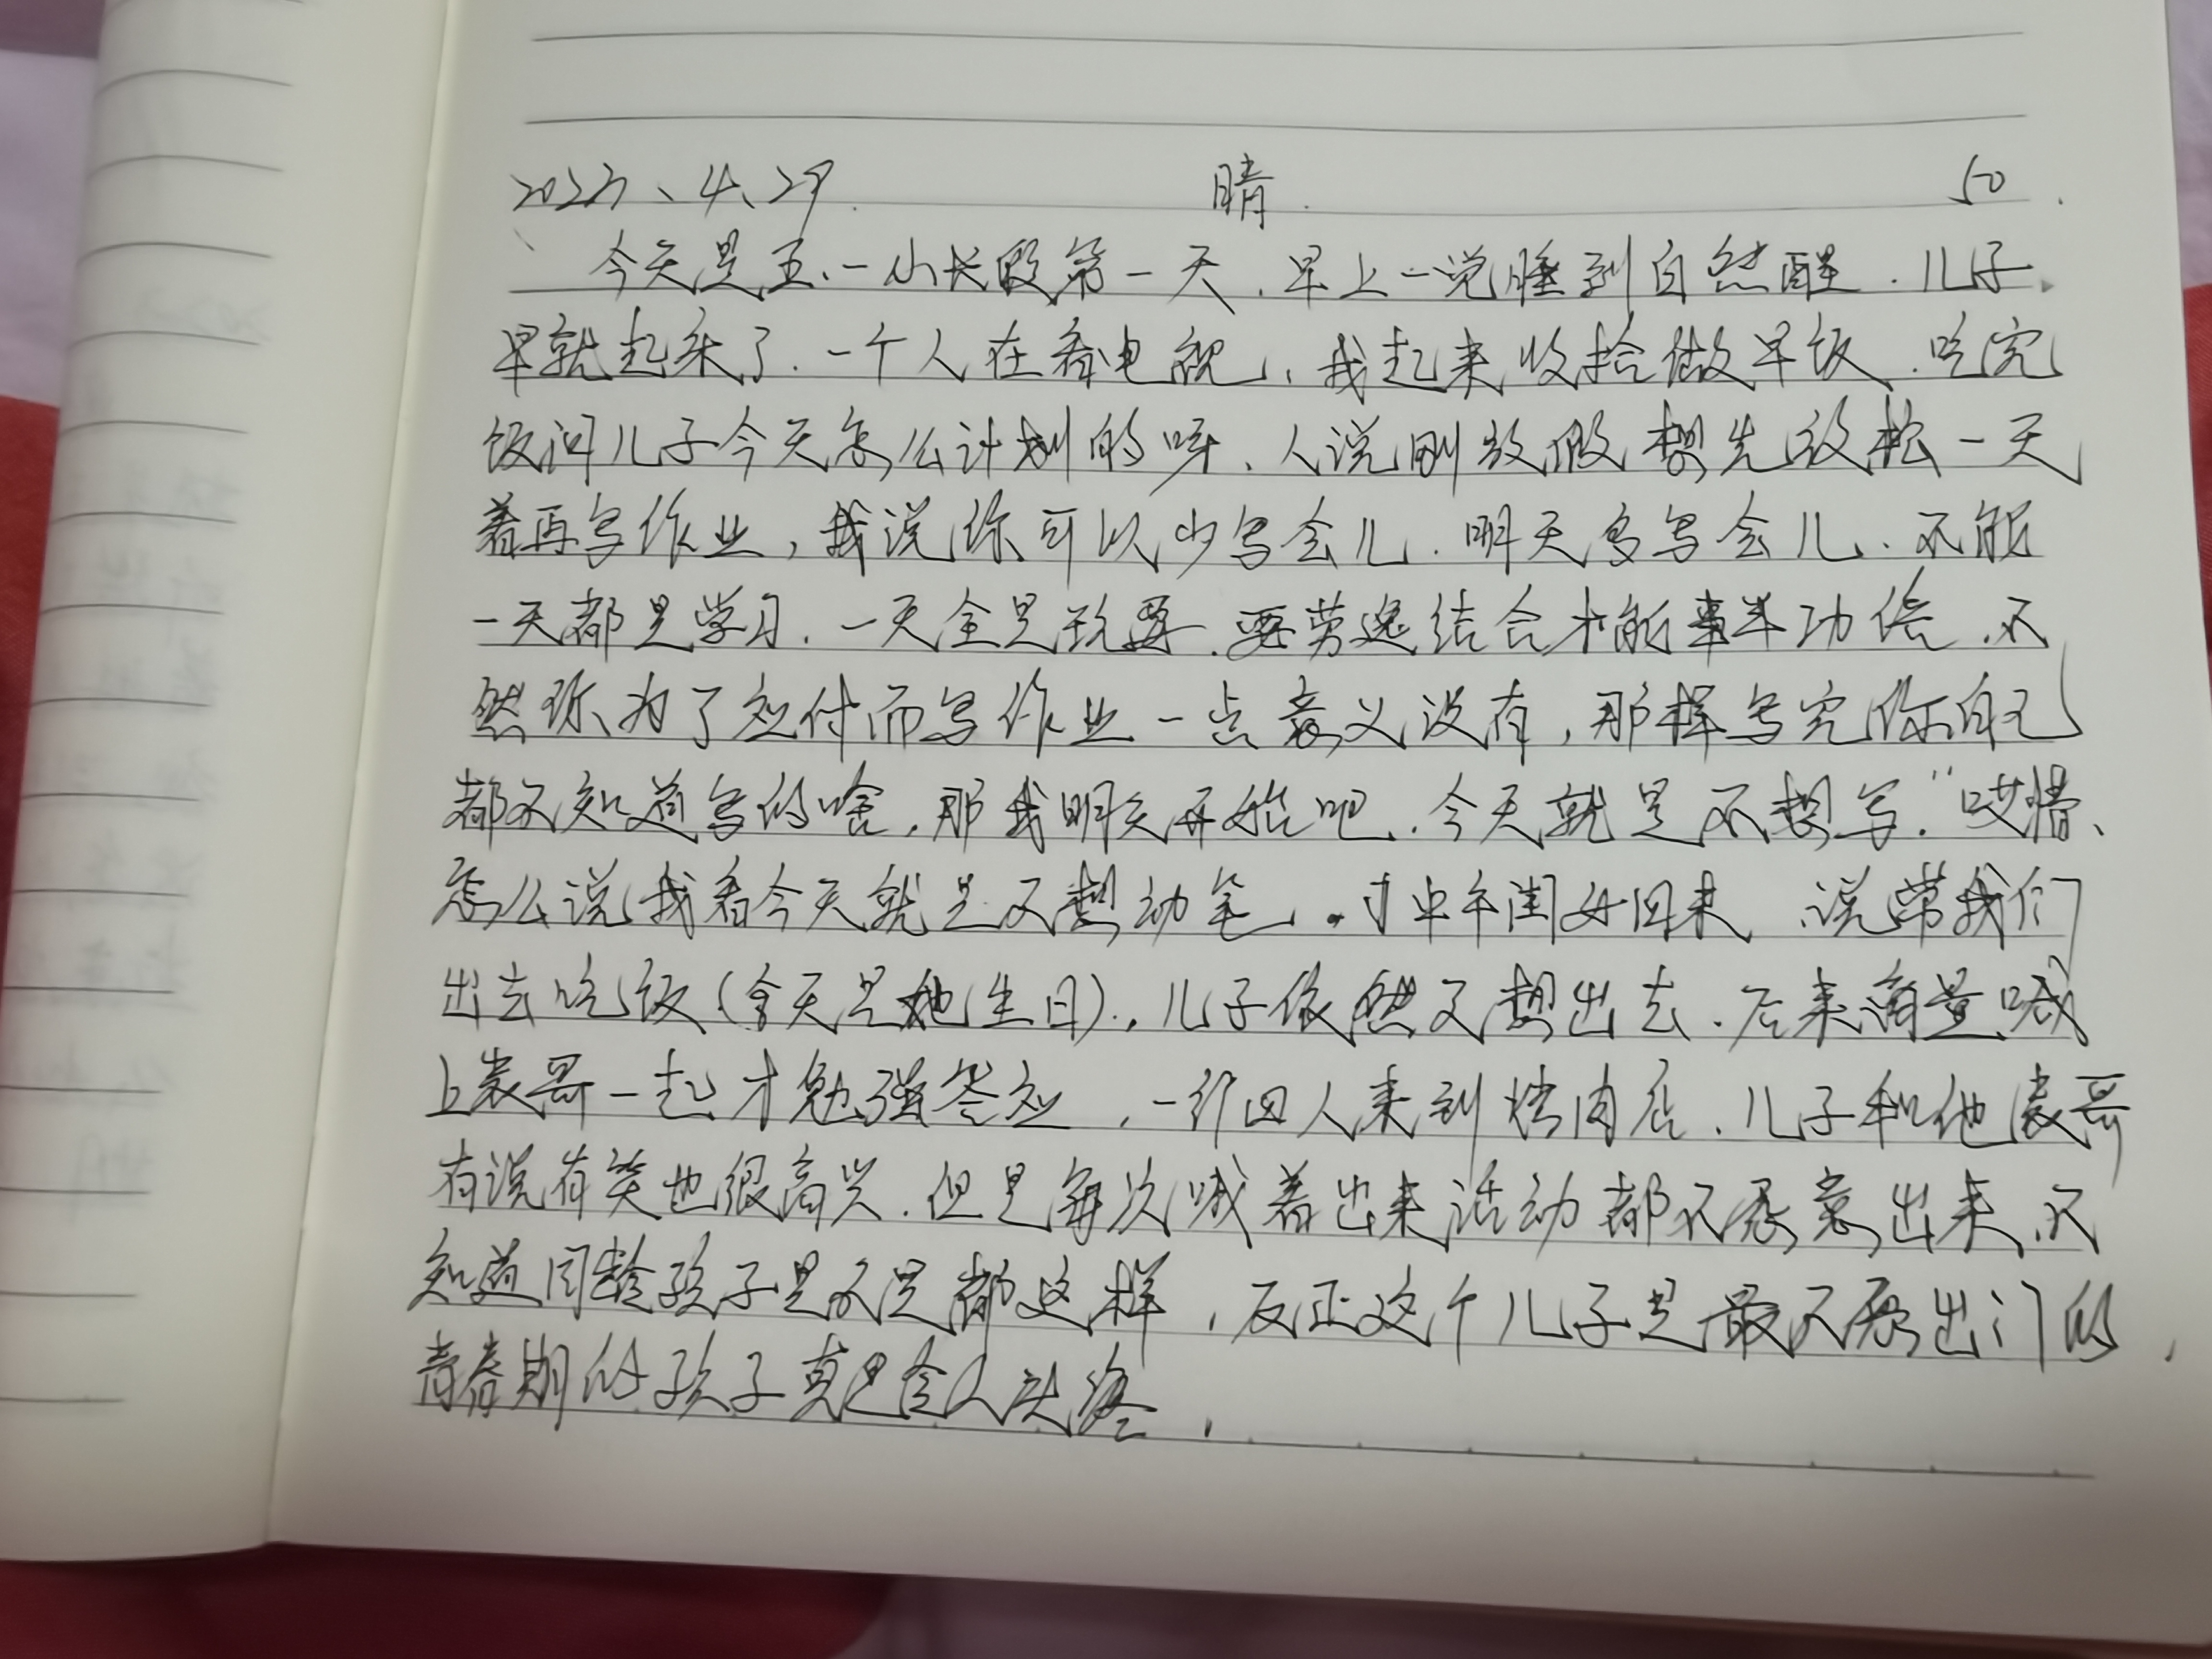 2023、4、29. 晴. 50.
今天是五、一小长假第一天.早上一觉睡到自然醒.儿子
早就起来了.一个人在看电视、我起来收拾做早饭.吃完
饭问儿子今天怎么计划的呀、人说刚放假想先放松一天
着再写作业,我说你可以少写会儿.明天多写会儿.不能
一天都是学习.一天全是玩耍.要劳逸结合才能事半功倍.不
然你为了应付而写作业一点意义没有,那样写完你自己
都不知道写的啥.那我明天开始吧.今天就是不想写."哎懵、
怎么说我看今天就是不想动笔.中午闺女回来、说带我们
出去吃饭(今天是她生日).儿子依然不想出去.后来商量喊
上表哥一起才勉强答应,一行四人来到烤肉店.儿子和他表哥
有说有笑也很高兴.但是每次喊着出来活动都不愿意出来.不
知道同龄孩子是不是都这样,反正这个儿子是最不愿出门的,
青春期的孩子真是令人头疼.